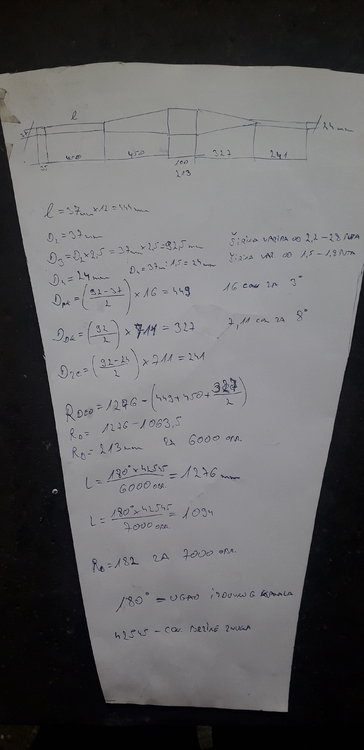 l
24 mm
35
450
450
100
327
241
213
l = 37mm x 12 = 444mm
D2 = 37mm
D3 = D2 x 2,5 = 37mm x 2,5 = 92,5mm ŠIRINA VARIRA OD 2,2 - 2,8 PUTA
D4 = 24mm D4 = 37m : 1,5 = 24mm ŠIRINA VAR. OD 1,5 - 1,9 PUTA
= (92-37 / 2) x 16 = 449 16 con ZA 3°
= (92 / 2) x 711 = 327 7,11 con ZA 8°
= (92-24 / 2) x 711 = 241
= 1276 - (449 + 450 + 327 / 2)
= 1276 - 1063,5
= 213mm ZA 6000 OBR.
L = 180° x 42545 / 6000 OBR = 1276 mm
L = 180° x 42545 / 7000 OBR = 1094
= 182 ZA 7000 OBR.
180° = UGAO IZDUVNOG KANALA
42545 - CON. BRZINE ZVUKA